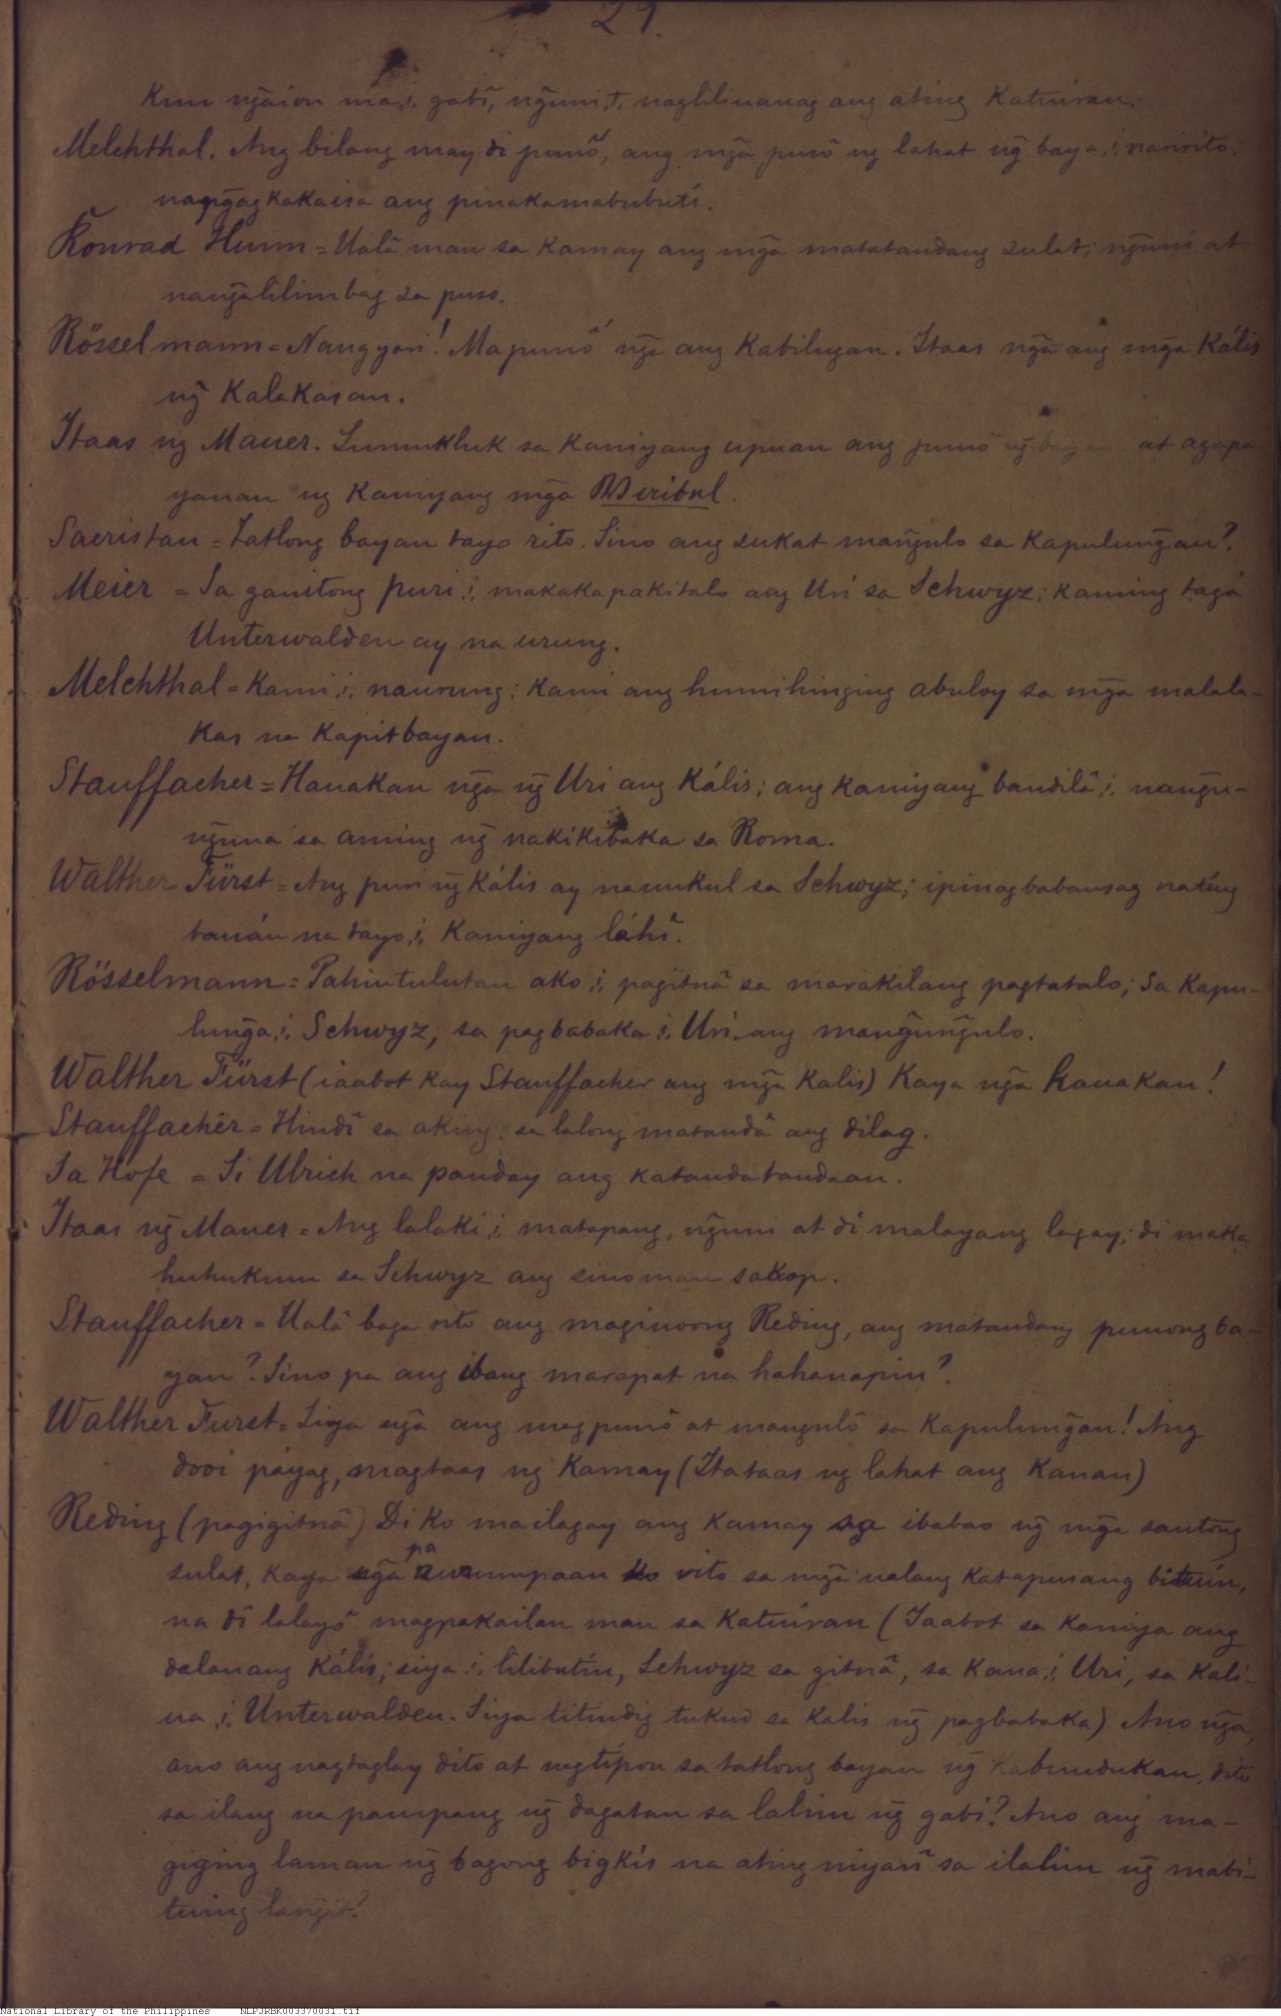 29.
Kun ng̃aion ma,i, gabí, ng̃uni,t, nagliliuanag ang ating Katuiran.
Melchthal. Ang bilang may di punô, ang mg̃a pusò ng lahat ng̃ baya,i, naririto,
nang̃agkakaisa ang pinakamabubuti.
Konrad Hunn = Ualâ man sa kamay ang mg̃a matatandang sulat; ng̃uni at
nang̃alilimbag sa puso.
Rösselmann = Nangyari! Mapunô ng̃a ang Kabilugan. Itaas ng̃a ang mg̃a Kális
ng̃ Kalakasan.
Itaas ng Mauer. Lumukluk sa kaniyang upuan ang punò ng̃ bayan at agapa
yanan ng kaniyang mg̃a Weibel.
Sacristan = Tatlong bayan tayo rito. Sino ang sukat mang̃ulo sa Kapulung̃an?
Meier = Sa ganitong puri,i, makakapakitalo ang Uri sa Schwyz; kaming tagá
Unterwalden ay na urung.
Melchthal = Kami,i, naurung; kami ang humihinging abuloy sa mg̃a malala-
kas na Kapitbayan.
Stauffacher = Hauakan ng̃a ng̃ Uri ang Kális; ang kaniyang bandilà,i, nang̃u-
ng̃una sa aming ng̃ nakikibaka sa Roma.
Walther Fürst = Ang puri ng̃ Kális ay nauukul sa Schwyz; ipinagbabansag natíng
tanán na tayo,i, Kaniyang láhì.
Rösselmann = Pahintulutan ako,i, pagitnâ sa marakilang pagtatalo; sa Kapu-
lung̃a,i, Schwyz, sa pagbabaka,i, Uri ang mang̃ung̃ulo.
Walther Fürst (iaabot kay Stauffacher ang mg̃a Kalis) Kaya ng̃a hauakan!
Stauffacher = Hindî sa aking; sa lalong matandâ ang dilag.
Sa Hofe = Si Ulrich na panday ang katandatandaan.
Itaas ng̃ Mauer = Ang lalaki,i, matapang, ng̃uni at di malayang lagay; di maka
huhukum sa Schwyz ang sinoman sakop.
Stauffacher = Ualâ baga rito ang maginoong Reding, ang matandang punong ba-
yan? Sino pa ang ibang marapat na hahanapin?
Walther Furst = Siya ng̃a ang magpunô at mangulò sa Kapulung̃an! Ang
dooi páyag, magtaas ng Kamay (Itataas ng lahat ang Kanan)
Reding (pagigitnâ) Di ko mailagay ang kamay sa ibabao ng̃ mg̃a santong
sulat, kaya ng̃a pa nunumpaan ko rito sa mg̃a ualang katapusang bituin,
na di lalayô magpakailan man sa Katuiran (Iaabot sa kaniya ang
dalauang Kális; siya,i, lilibutin, Schwyz sa gitnâ, sa Kana,i, Uri, sa Kali-
ua,i, Unterwalden. Siya titindig tukud sa Kalis ng̃ pagbabaka) Ano ng̃a,
ano ang nagtaglay dito at nagtipon sa tatlong bayan ng̃ Kabundukan, dito
sa ilang na pampang ng̃ dagatan sa lalim ng̃ gabi? Ano ang ma-
giging laman ng̃ bagong bigkís na ating niyarì sa ilalim ng̃ mabi-
tuing lang̃it?
National Library of the Philippines NLPJRBK003370031.tif